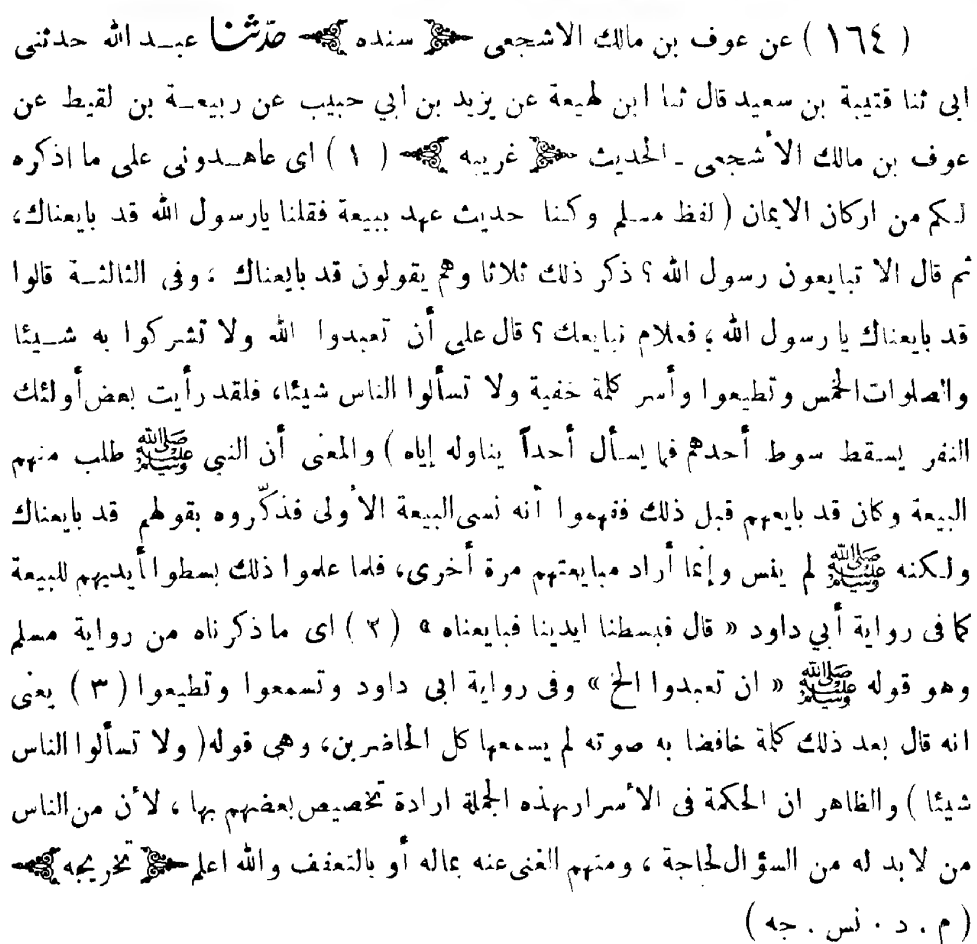 ( ١٦٤ ) عن عوف بن مالك الاشجعى ﴿ سنده ﴾ حدّثنا عبد الله حدثنى
ابى ثنا قتيبة بن سعيد قال ثنا ابن لهيعة عن يزيد بن ابي حبيب عن ربيعة بن لقيط عن
عوف بن مالك الأشجعى ـ الحديث ﴿ غريبه ﴾ ( ١ ) اى عاهدونى على ما اذكره
لكم من اركان الايمان ( لفظ مسلم وكنا حديث عهد ببيعة فقلنا يارسول الله قد بايعناك،
ثم قال الا تبايعون رسول الله ؟ ذكر ذلك ثلاثا وهم يقولون قد بايعناك ، وفى الثالثة قالوا
قد بايعناك يا رسول الله ، فعلام نبايعك ؟ قال على أن تعبدوا الله ولا تشركوا به شيئا
والصلوات الخمس وتطيعوا وأسر كلمة خفية ولا تسألوا الناس شيئا، فلقد رأيت بعض أولئك
النفر يسقط سوط أحدهم فما يسأل أحداً يناوله إياه ) والمعنى أن النبي ﷺ طلب منهم
البيعة وكان قد بايعهم قبل ذلك ففهموا أنه نسى البيعة الأولى فذكّروه بقولهم قد بايعناك
ولكنه ﷺ لم ينس وإنما أراد مبايعتهم مرة أخرى، فلما علموا ذلك بسطوا أيديهم للبيعة
كما فى رواية أبي داود « قال فبسطنا ايدينا فبايعناه » ( ٢ ) اى ما ذكرناه من رواية مسلم
وهو قوله ﷺ « ان تعبدوا الخ » وفى رواية ابى داود وتسمعوا وتطيعوا ( ٣ ) يعنى
انه قال بعد ذلك كلمة خافضا به صوته لم يسمعها كل الحاضرين، وهى قوله ( ولا تسألوا الناس
شيئا ) والظاهر ان الحكمة فى الأسرار بهذه الجملة ارادة تخصيص بعضهم بها ، لأن من الناس
من لابد له من السؤال لحاجة ، ومنهم الغنى عنه بماله أو بالتعفف والله اعلم ﴿ تخريجه ﴾
( م . د . نس . جه )